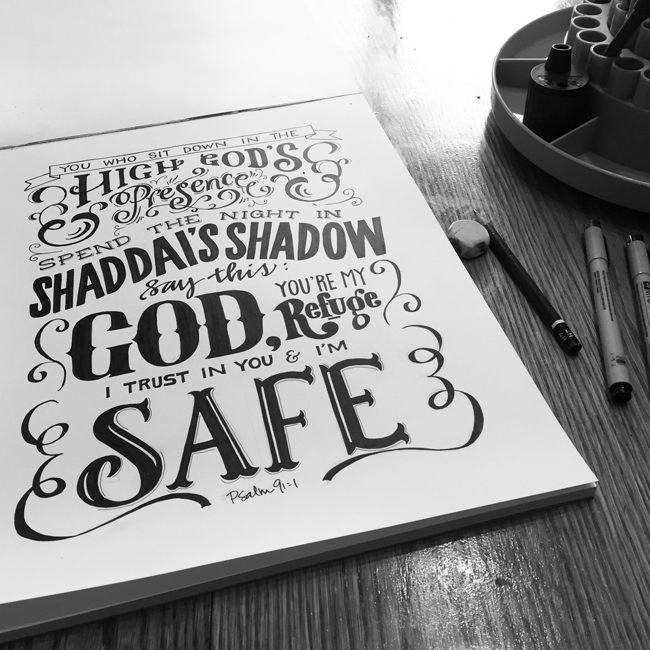 YOU WHO SIT DOWN IN THE
HIGH GOD'S
Presence &
SPEND THE NIGHT IN
SHADDAI'S SHADOW
say this:
GOD, YOU'RE MY
Refuge
I TRUST IN YOU & I'M
SAFE
Psalm 91:1